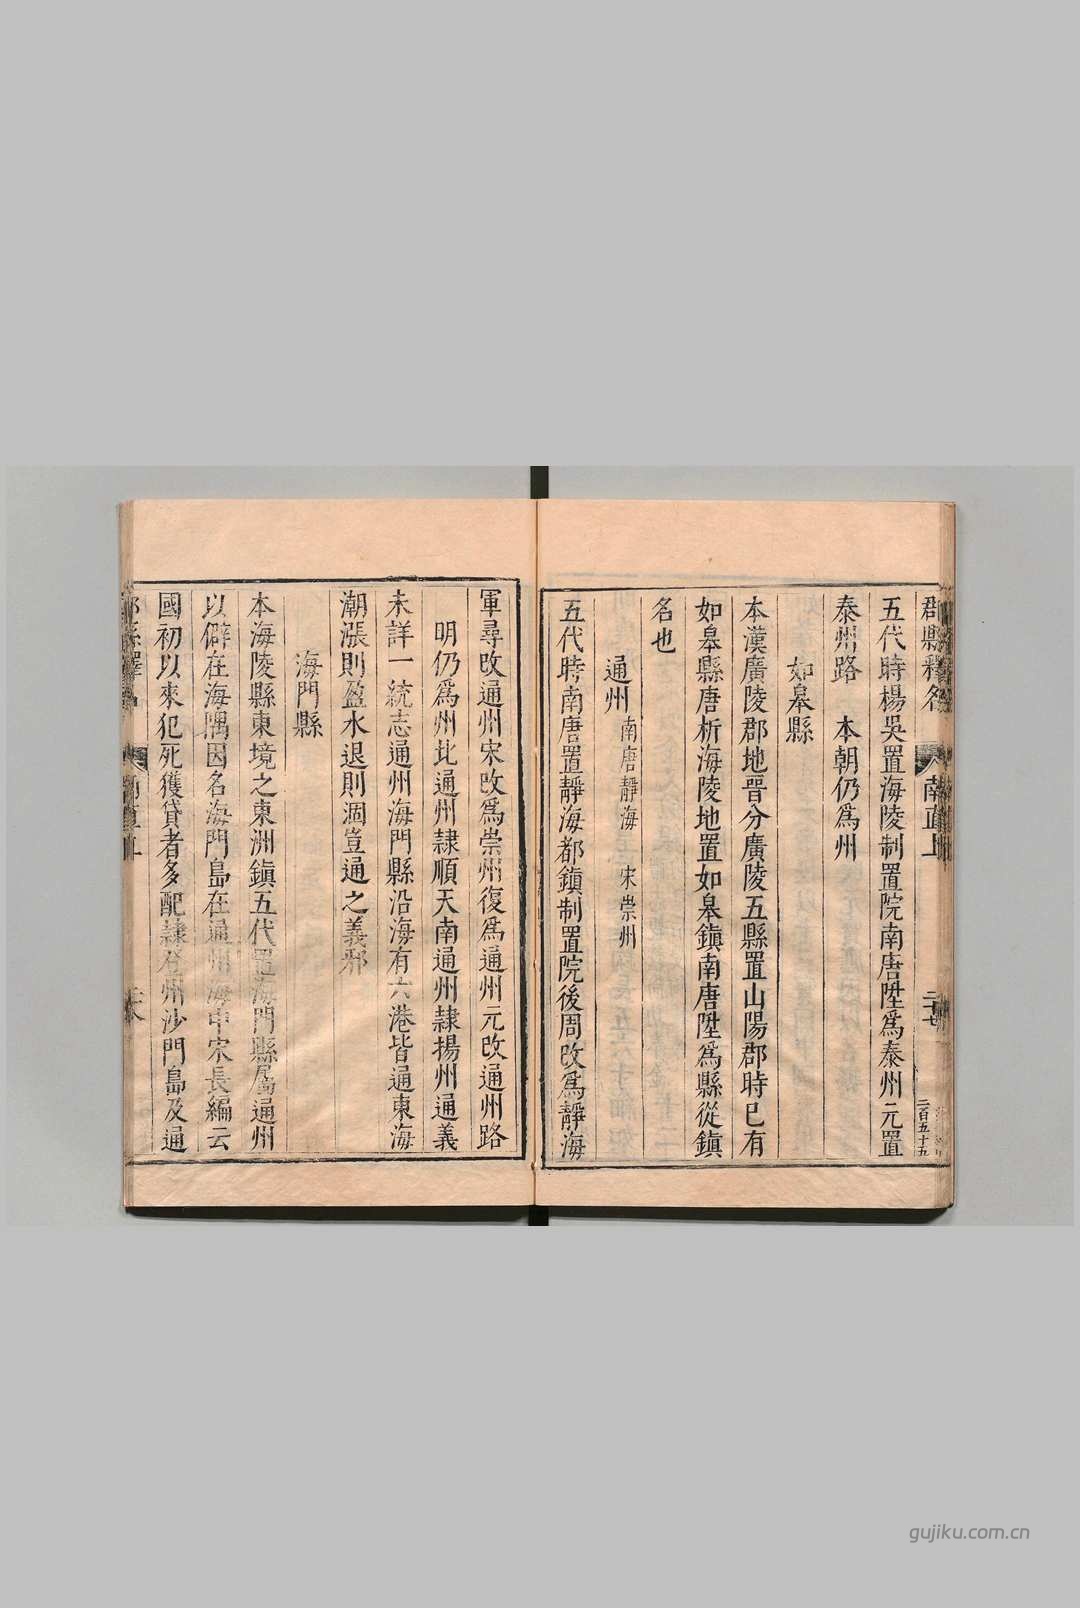 郡縣釋名
南直上
二十七
二百五十五
五代時楊吳置海陵制置院南唐陞爲泰州元置
泰州路　本朝仍爲州
如皋縣
本漢廣陵郡地晉分廣陵五縣置山陽郡時已有
如皋縣唐析海陵地置如皋鎮南唐陞爲縣從鎮
名也
通州　南唐靜海　宋崇州
五代時南唐置靜海都鎮制置院後周改爲靜海
軍尋改通州宋改爲崇州復爲通州元改通州路
明仍爲州北通州隸順天南通州隸揚州通義
未詳一統志通州海門縣沿海有六港皆通東海
潮漲則盈水退則涸豈通之義邪
海門縣
本海陵縣東境之東洲鎮五代置海門縣屬通州
以僻在海隅因名海門島在通州海中宋長編云
國初以來犯死獲貸者多配隸登州沙門島及通
gujiku.com.cn